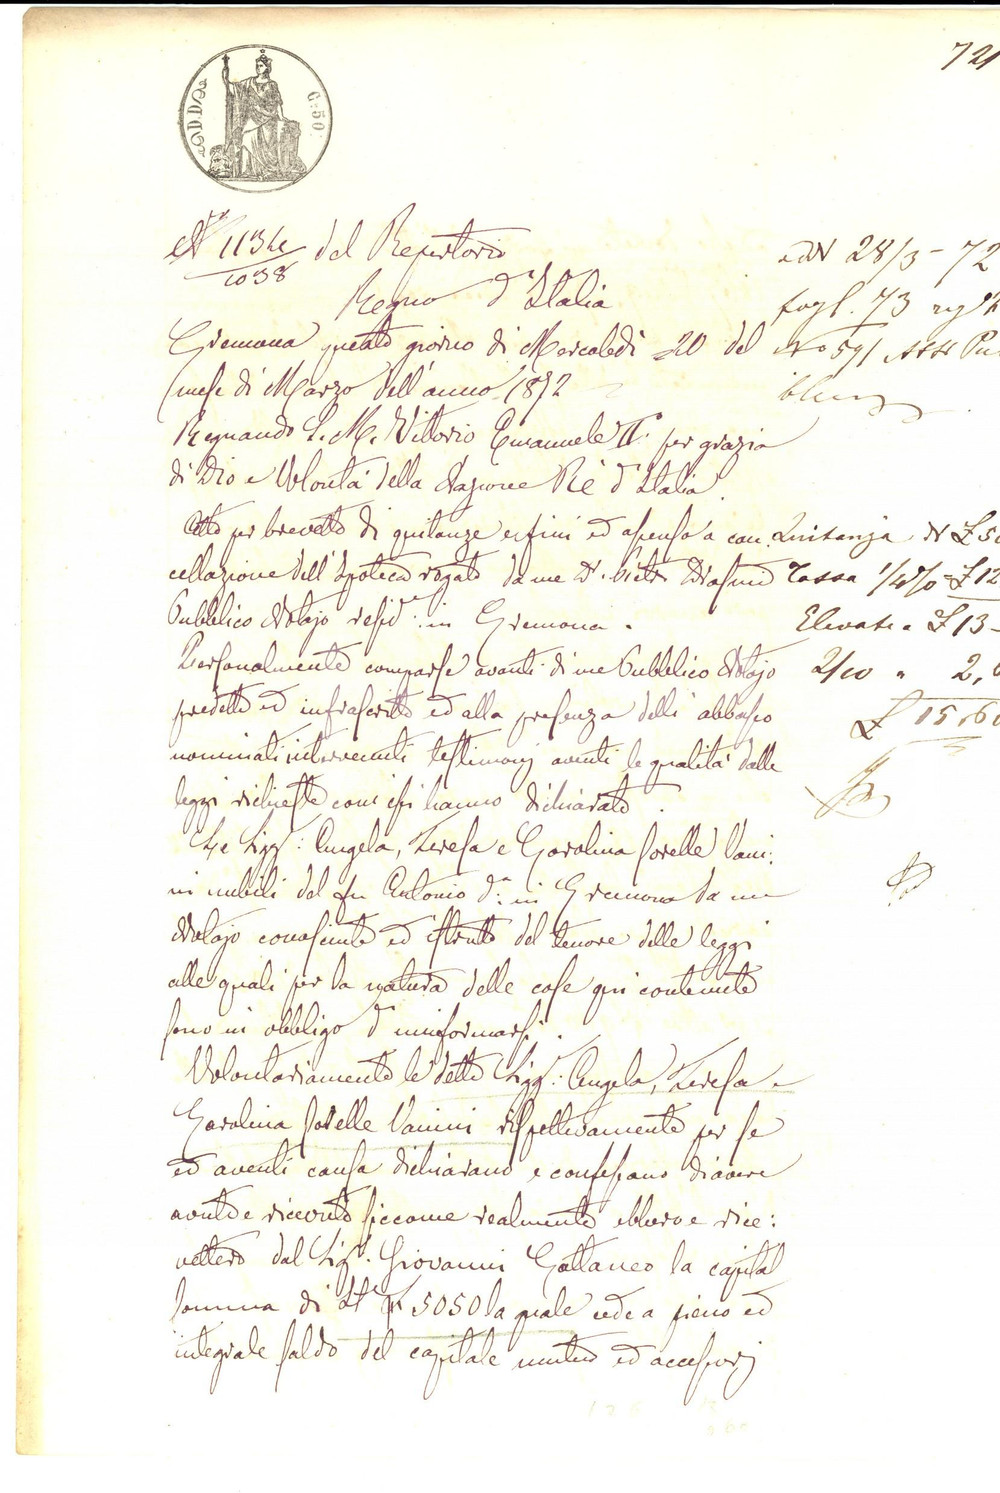 721
C. 50
N° 1134/1038 del Repertorio
Regno d'Italia
Cremona questo giorno di Mercoledì 20 del
mese di Marzo dell'anno 1872
Regnando S. M. Vittorio Emanuele II° per grazia
di Dio e Volontà della Nazione Rè d'Italia.
Atto per brevetto di quitanze e fini ed assenso a can:
cellazione dell'Ipoteca rogato da me Dr. Pietro
Pubblico Notajo resid.e in Cremona.
Personalmente comparse avanti di me Pubblico Notajo
predetto ed infrascritto ed alla presenza delli abbasso
nominati intervenuti testimonj aventi le qualità dalle
leggi richieste com'essi hanno dichiarato.
Le Sigg: Angela, Teresa e Carolina sorelle Vani:
ni nubili del fu Antonio d.a in Cremona da me
Notajo conosciute ed istrutte del tenore delle leggi
alle quali per la natura delle cose qui contenute
sono in obbligo d'uniformarsi.
Volontariamente le dette Sigg: Angela, Teresa e
Carolina sorelle Vanini rispettivamente per se
ed aventi causa dichiarano e confessano di avere
avuto e ricevuto siccome realmente ebbero e rice:
vettero dal Sigr. Giovanni Cattaneo la capital
somma di It.e £ 5050 la quale cede a pieno ed
integrale saldo del capitale mutuo ed accessorj
28/3 - 72
fogl. 73
No 591 Atti Pu
blici
Quitanza £ 50
Tassa 1/4 % = £ 12
Elevate a £ 13 -
2/10 " 2,6
£ 15.60